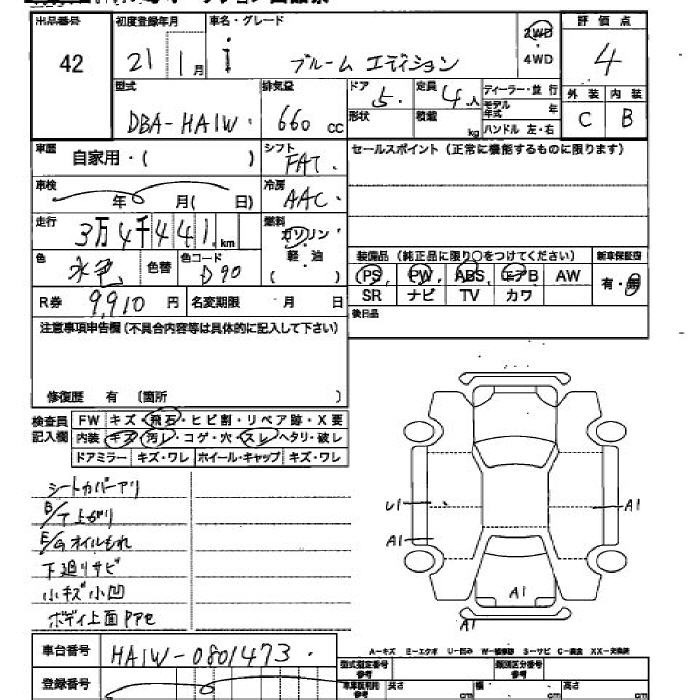 出品番号 初度登録年月 車名・グレード 評価点
42 21 1月 i ブルーム エディション 2WD 4WD 4
型式 排気量 ドア 5. 定員 4人 ディーラー・並行 外装 内装
DBA-HA1W. 660 cc 形状 積載 kg モデル年式 年 C B
ハンドル 左・右
車歴 自家用・( ) シフト FAT. セールスポイント(正常に機能するものに限ります)
車検 年 月( 日) 冷房 AAC.
走行 3万4千441.km 燃料 ガソリン
色 水色 色替 色コード D90 軽・油 ( ) 装備品(純正品に限り○をつけてください) 新車保証書
PS PW ABS エアB AW 有・無
R券 9,910円 名変期限 月 日 SR ナビ TV カワ
注意事項申告欄(不具合内容等は具体的に記入して下さい) 後日品
修復歴 有 〔箇所 〕
検査員記入欄 FW キズ・飛石・ヒビ割・リペア跡・X要
内装 キズ・汚レ・コゲ・穴・スレ・ヘタリ・破レ
ドアミラー キズ・ワレ ホイール・キャップ キズ・ワレ
シートカバーアリ
B/T上がり
E/Gオイルもれ
下廻りサビ
小キズ小凹
ボディ上面
U1 A1
A1
A1
A1
車台番号 HA1W-0801473.
A-キズ E-エクボ U-凹み W-補修跡 S-サビ C-腐食 XX-交換済
登録番号 型式指定番号 参考 類別区分番号 参考
長さ cm 幅 cm 高さ cm